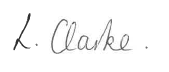 L. Clarke.